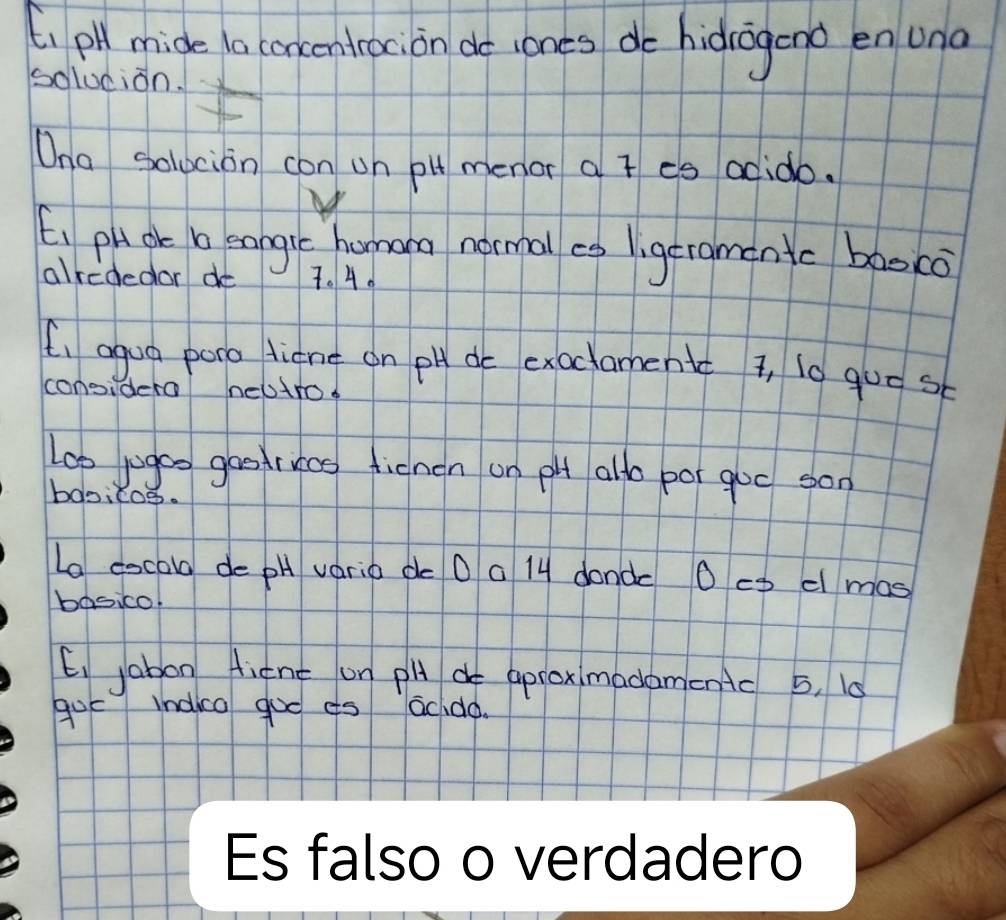 El pH mide la concentración de iones de hidrógeno en una
solución. F
Una solución con un pH menor a 7 es acido.
V
El pH de la sangre humana normal es ligeramente basico
alrededor de 7.4.
El agua pura tiene un pH de exactamente 7, lo que se
considera neutro.
Los jugos gastricos tienen un pH alto por que son
basicos.
La escala de pH varia de 0 a 14 donde 0 es el mas
basico.
El jabon tiene un pH de aproximadamente 5, lo
que indica que es ácido.
Es falso o verdadero